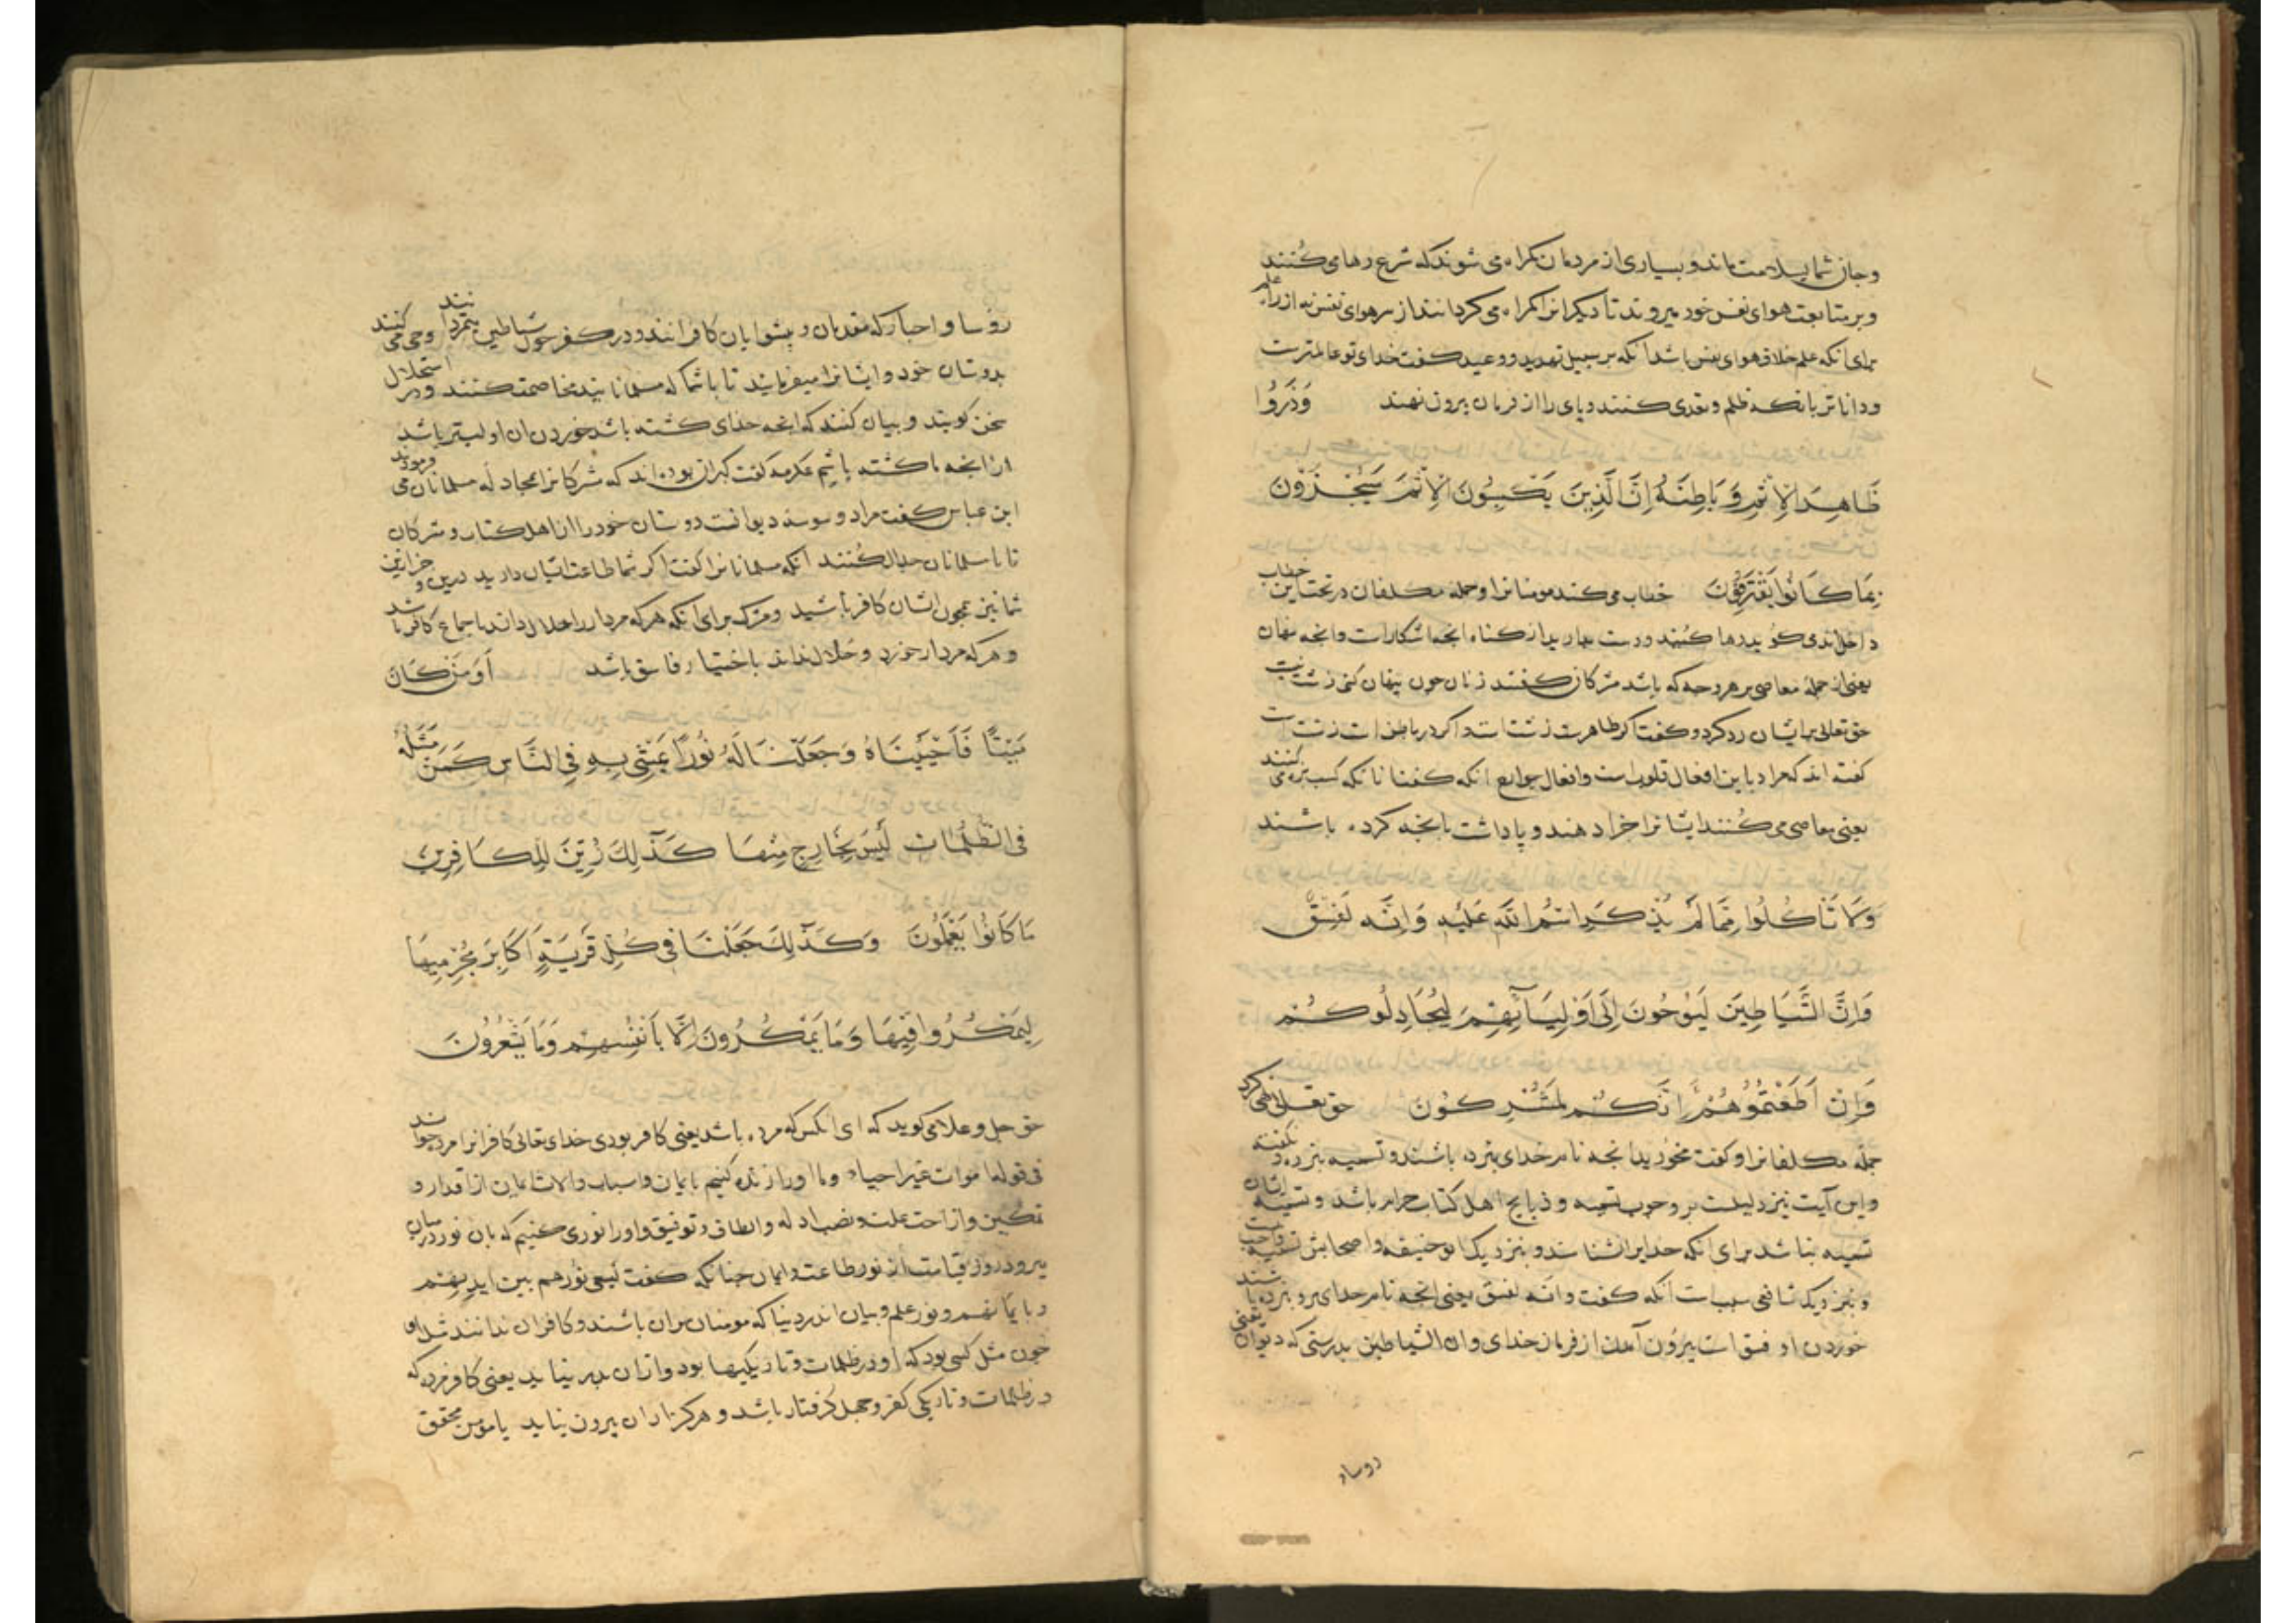 و جان شما بسلامت ماند و بسیاری از مردمان کمراه می شوند که شرع رها می کُنند
و بر متابعت هوای نفس خود میروند تا دیکرانرا کمراه می کردانند از سر هوای نفس نه از راه علم
برای انکه علم خلاق هوای نفس باشد انکه بر سبیل تهدید و وعید کفت خدای تو عالمترست
و داناتر بانکه ظلم و تعدی کنند و پای را از فرمان بیرون نهند وَذَرُوا
ظَاهِرَ الْاِثْمِ وَ بَاطِنَهُ اِنَّ الَّذِينَ يَكْسِبُونَ الْاِثْمَ سَيُجْزَوْنَ
بِمَا كَانُوا يَقْتَرِفُونَ خطاب می کند مومنانرا و جمله مکلفان در تحت این خطاب
داخل اند می کوید رها کُنید و دست بدارید از کناه انجه اشکارات وانجه نهان
یعنی از جملهٔ معاصی بر هر وجه که باشد مشرکان کفتند زنان جون پنهان کنی زشت نیست
حق تعالی برایشان رد کرد و کفت اکر ظاهرت زشت است و اکر در باطن است زشت است
کفته اند که مراد باین افعال قلوب است و افعال جوارح انکه کفت انانکه کسب بزه می کنند
یعنی معاصی می کُنند ایشانرا جزا دهند و پاداشت بانجه کرده باشند
وَلَا تَاكُلُوا مِمَّا لَمْ يُذْكَرِ اسْمُ اللّٰهِ عَلَيْهِ وَاِنَّهُ لَفِسْقٌ
وَاِنَّ الشَّيَاطِينَ لَيُوحُونَ اِلَى اَوْلِيَائِهِمْ لِيُجَادِلُوكُمْ
وَاِنْ اَطَعْتُمُوهُمْ اِنَّكُمْ لَمُشْرِكُونَ حق تعالی نهی کرد
جمله مکلفانرا و کفت مخورید انجه نام خدای نبرده باشند و تسمیه نبرده و نکفته
و این آیت نیز دلیلست بر وجوب تسمیه و ذبایح اهل کتاب حرام باشد و تسمیه ایشان
تسمیه نباشد برای انکه خدایرا نشناسند و بنزدیک ابو حنیفه و اصحابش تسمیه واجب است
و بنزدیک شافعی سنت است انکه کفت وانه لفسق یعنی انجه نام خدای برو نبرده باشند
خوردن او فسق است بیرون آمدن از فرمان خدای وان الشیاطین بدرستی که دیوان یعنی
روساء
رؤسا و احبار که مقدمان و پیشوایان کافرانند و در کفر جون شیاطین متمردانند وحی می کنند
بدوستان خود و ایشانرا میفرمایند تا با شما که مسلمانانید مخاصمت کنند و در استحلال
سخن کویند و بیان کنند که انجه خدای کشته باشد خوردن ان اولیتر باشد
از انجه ما کشته باشیم عکرمه کفت کبران بوده اند که مشرکانرا مجادله مسلمانان می فرمودند
ابن عباس کفت مراد وسوسه دیوانست دوستان خود را از اهل کتاب و مشرکان
تا با مسلمانان جدال کُنند انکه مسلمانانرا کفت اکر شما طاعت ایشان دارید درین و جز این
شما نیز همجون ایشان کافر باشید و مشرک برای انکه هر که مردار را حلال داند باجماع کافر باشد
و هر که مردار خورد و حلال نداند باختیار فاسق باشد اَوَمَنْ كَانَ
مَيْتًا فَاَحْيَيْنَاهُ وَجَعَلْنَا لَهُ نُورًا يَمْشِى بِهِ فِى النَّاسِ كَمَنْ مَثَلُهُ
فِى الظُّلُمَاتِ لَيْسَ بِخَارِجٍ مِنْهَا كَذٰلِكَ زُيِّنَ لِلْكَافِرِينَ
مَا كَانُوا يَعْمَلُونَ وَكَذٰلِكَ جَعَلْنَا فِى كُلِّ قَرْيَةٍ اَكَابِرَ مُجْرِمِيهَا
لِيَمْكُرُوا فِيهَا وَمَا يَمْكُرُونَ اِلَّا بِاَنْفُسِهِمْ وَمَا يَشْعُرُونَ
حق جل و علا می کوید که ای انکس که مرده باشد یعنی کافر بودی خدای تعالی کافرانرا مرده خواند
فی قوله اموات غیر احیاء و ما او را زنده کنیم بایمان و اسباب والات ایمان از اقدار و
تمکین و ازاحت علت و نصب ادله و الطاف و توفیق و او را نوری کنیم که بان نور در میان
برود در روز قیامت از نور طاعت و ایمان جنانکه کفت یسعی نورهم بین ایدیهم
و بایمانهم و نور علم و بیان اندر دنیا که مومنان بران باشند و کافران ندانند مثل او
جون مثل کسی بود که او در ظلمات و تاریکیها بود و ازان بدر نیاید یعنی کافر مرده که
در ظلمات و تاریکی کفر و جهل کرفتار باشد و هرکز ازان بیرون نیاید یا مومن محقق